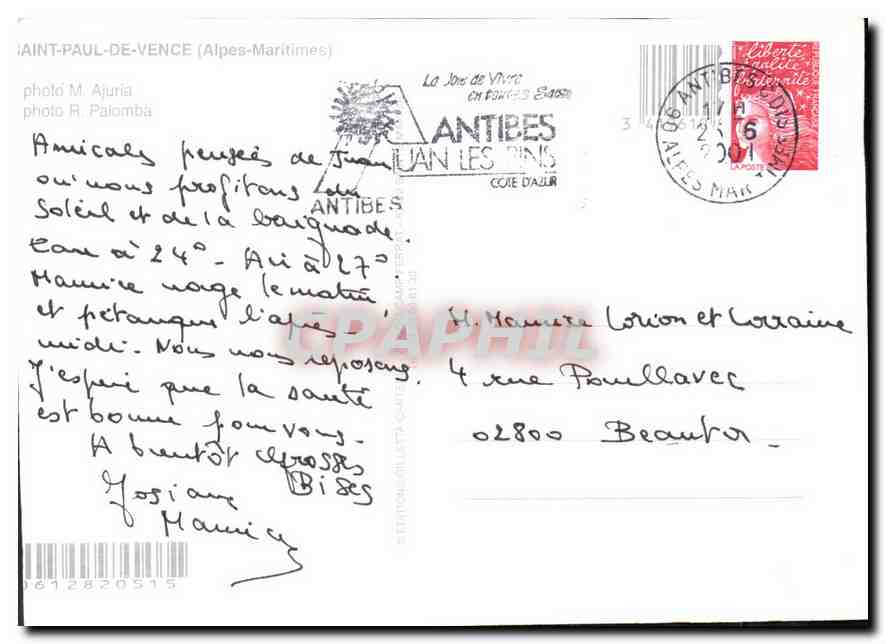 SAINT-PAUL-DE-VENCE (Alpes-Maritimes)
photo M. Ajuria
photo R. Palomba
Amicales pensées de Juan
où nous profitons du
Soleil et de la baignade.
Eau à 24° - Air à 27°
Maurice nage le matin
et pétanque l'après-
midi. Nous nous reposons.
J'espère que la santé
est bonne pour vous.
A bientôt Grosses
Bises
Josiane
Maurice
La Joie de Vivre
en toutes Saisons
ANTIBES
JUAN LES PINS
COTE D'AZUR
ANTIBES
liberté
égalité
fraternité
LA POSTE
06 ANTIBES
17H
6
2001
ALPES MARITIMES
M. Maurice Lorion et Lorraine
4 rue Poullavec
02800 Beautor -
CPAPHIL
0612820515